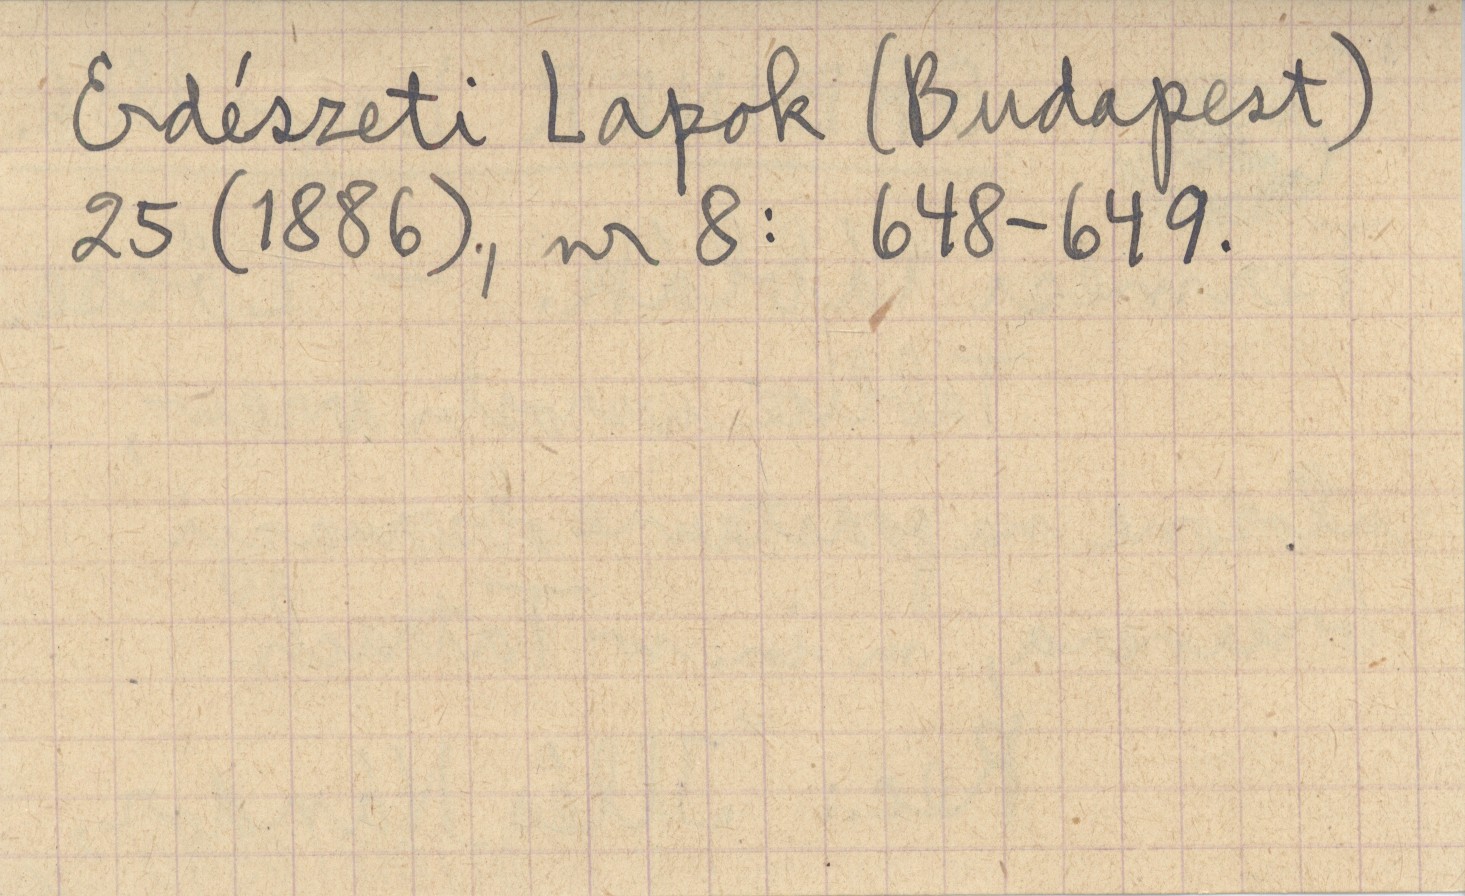 Erdészeti Lapok (Budapest)
25 (1886)., nr 8: 648-649.